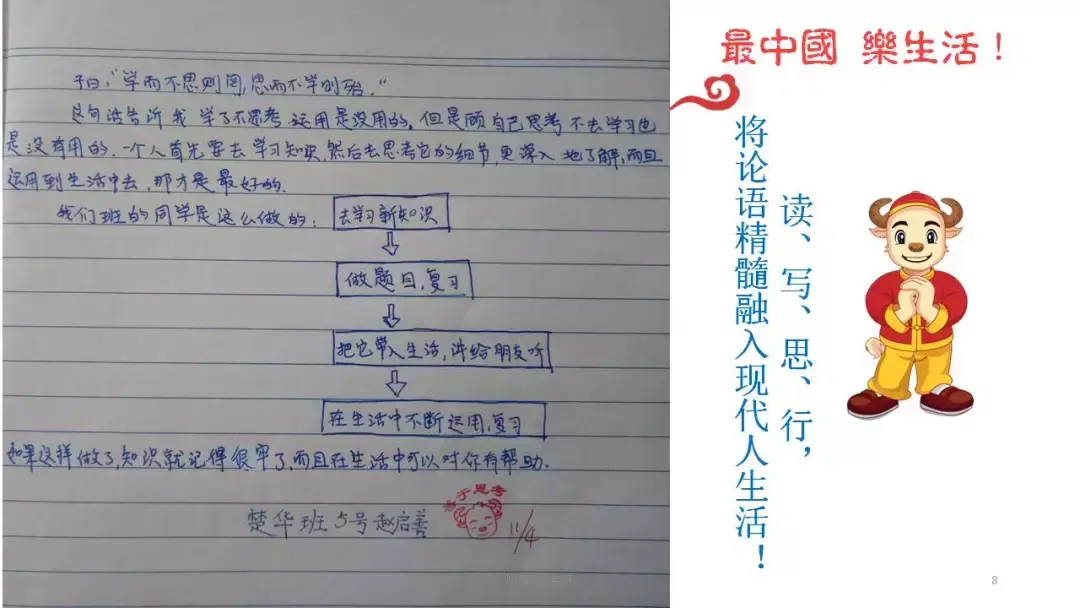 子曰："学而不思则罔,思而不学则殆."
这句话告所我学了不思考运用是没用的,但是顾自己思考不去学习也
是没有用的.一个人首先要去学习知识,然后去思考它的细节,更深入地了解,而且
运用到生活中去,那才是最好的.
我们班的同学是这么做的:
去学习新知识
做题目,复习
把它带入生活,讲给朋友听
在生活中不断运用,复习
如果这样做了,知识就记得很牢了,而且在生活中可以对你有帮助.
楚华班5号赵启善
善于思考
11/4
最中國 樂生活！
读、写、思、行，
将论语精髓融入现代人生活！
8